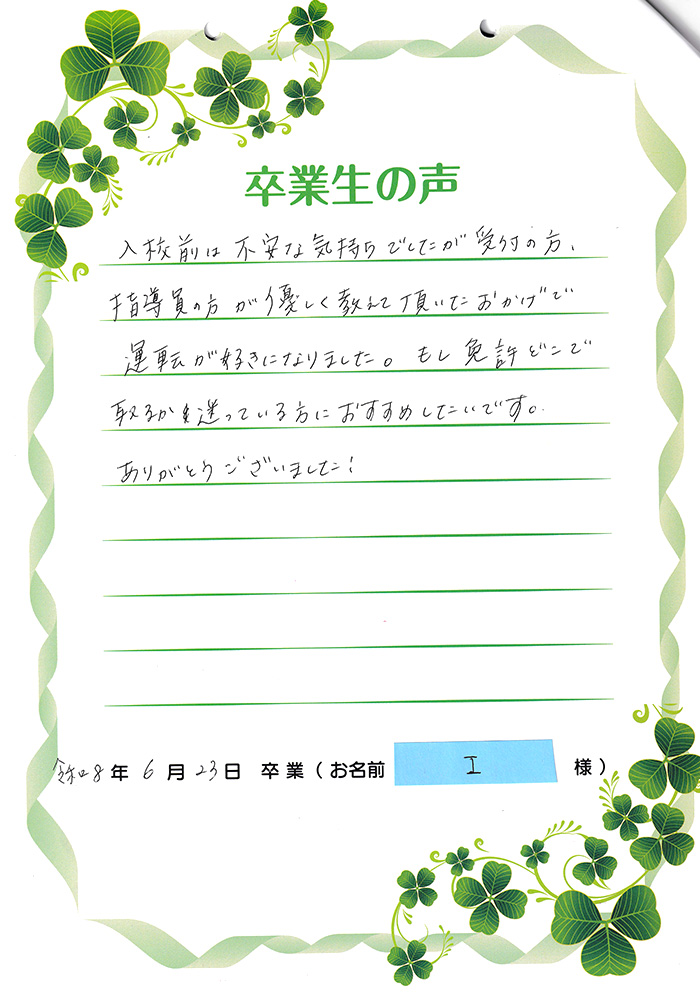 卒業生の声
入校前は不安な気持ちでしたが受付の方、
指導員の方が優しく教えて頂いたおかげで
運転が好きになりました。もし免許どこで
取るかを迷っている方におすすめしたいです。
ありがとうございました!
令和8年 6月 23日 卒業(お名前 I 様)